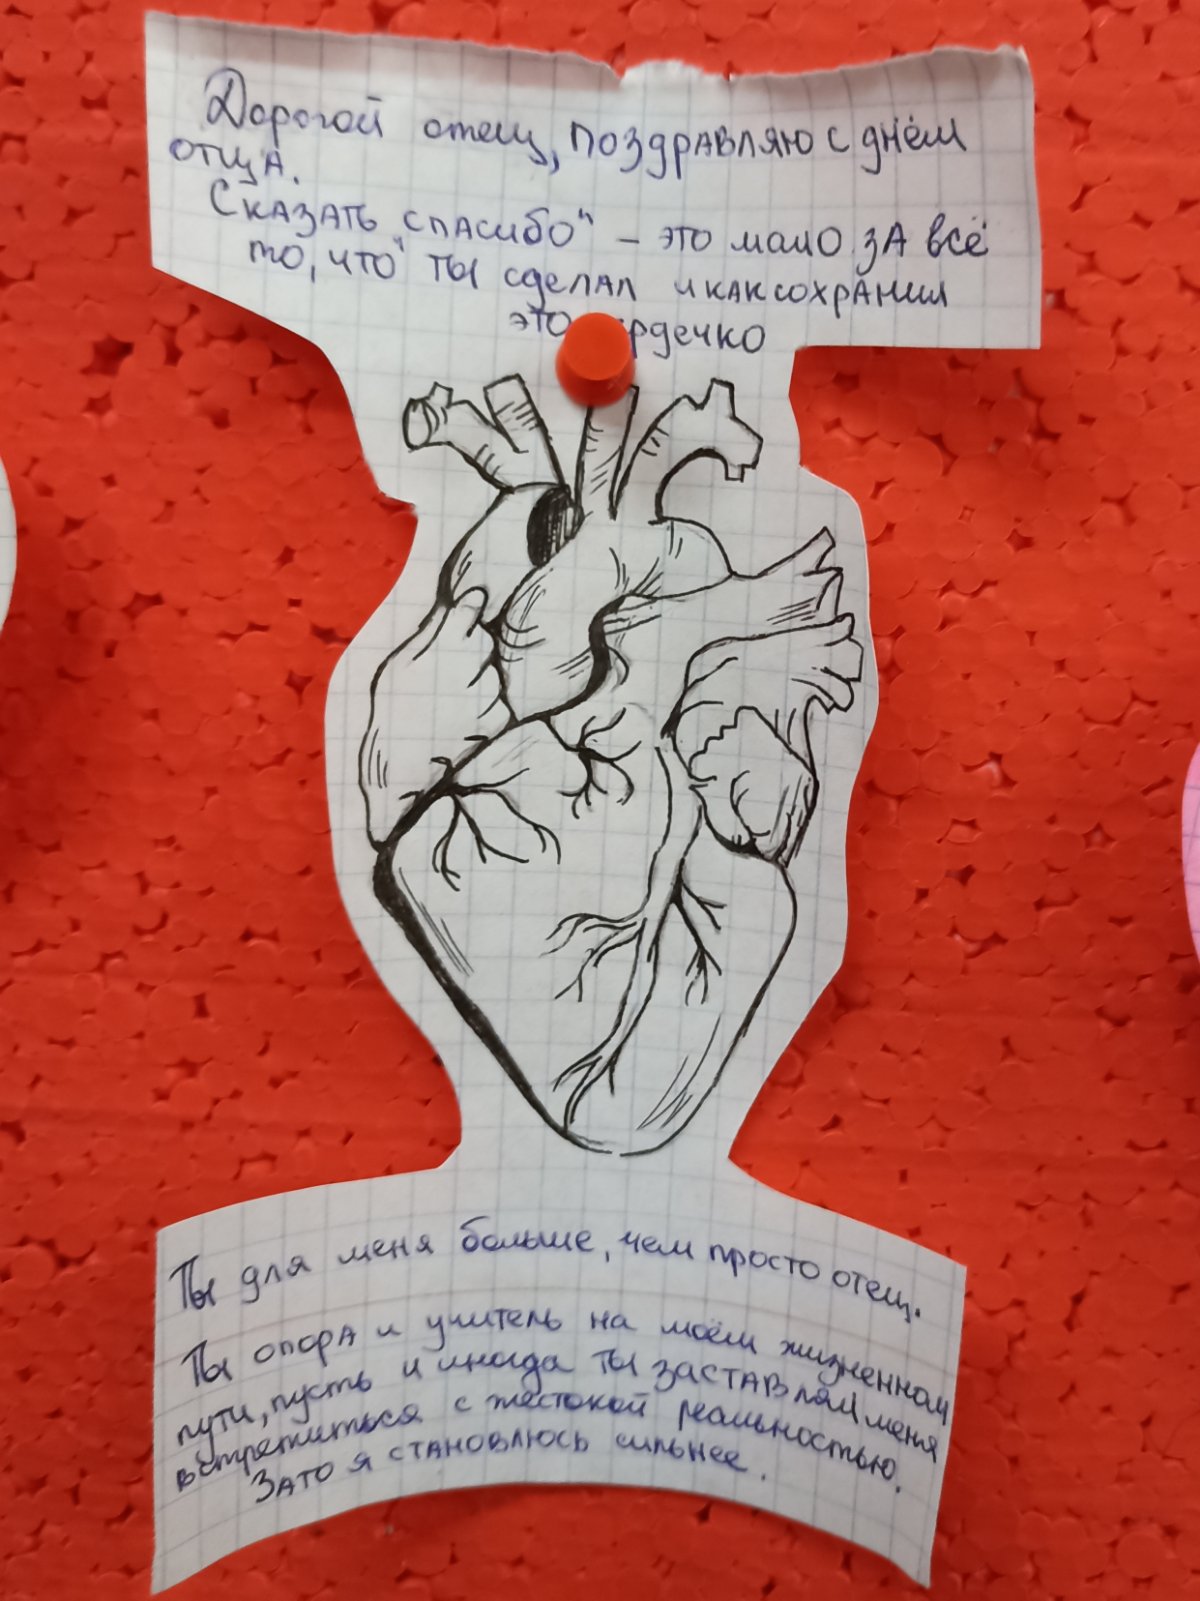 Дорогой отец, поздравляю с днём
отца.
Сказать „спасибо" – это мало за всё
то, что ты сделал и как сохранил
это рдечко
Ты для меня больше, чем просто отец.
Ты опора и учитель на моём жизненном
пути, пусть и иногда ты заставлял меня
встретиться с жестокой реальностью.
Зато я становлюсь сильнее.